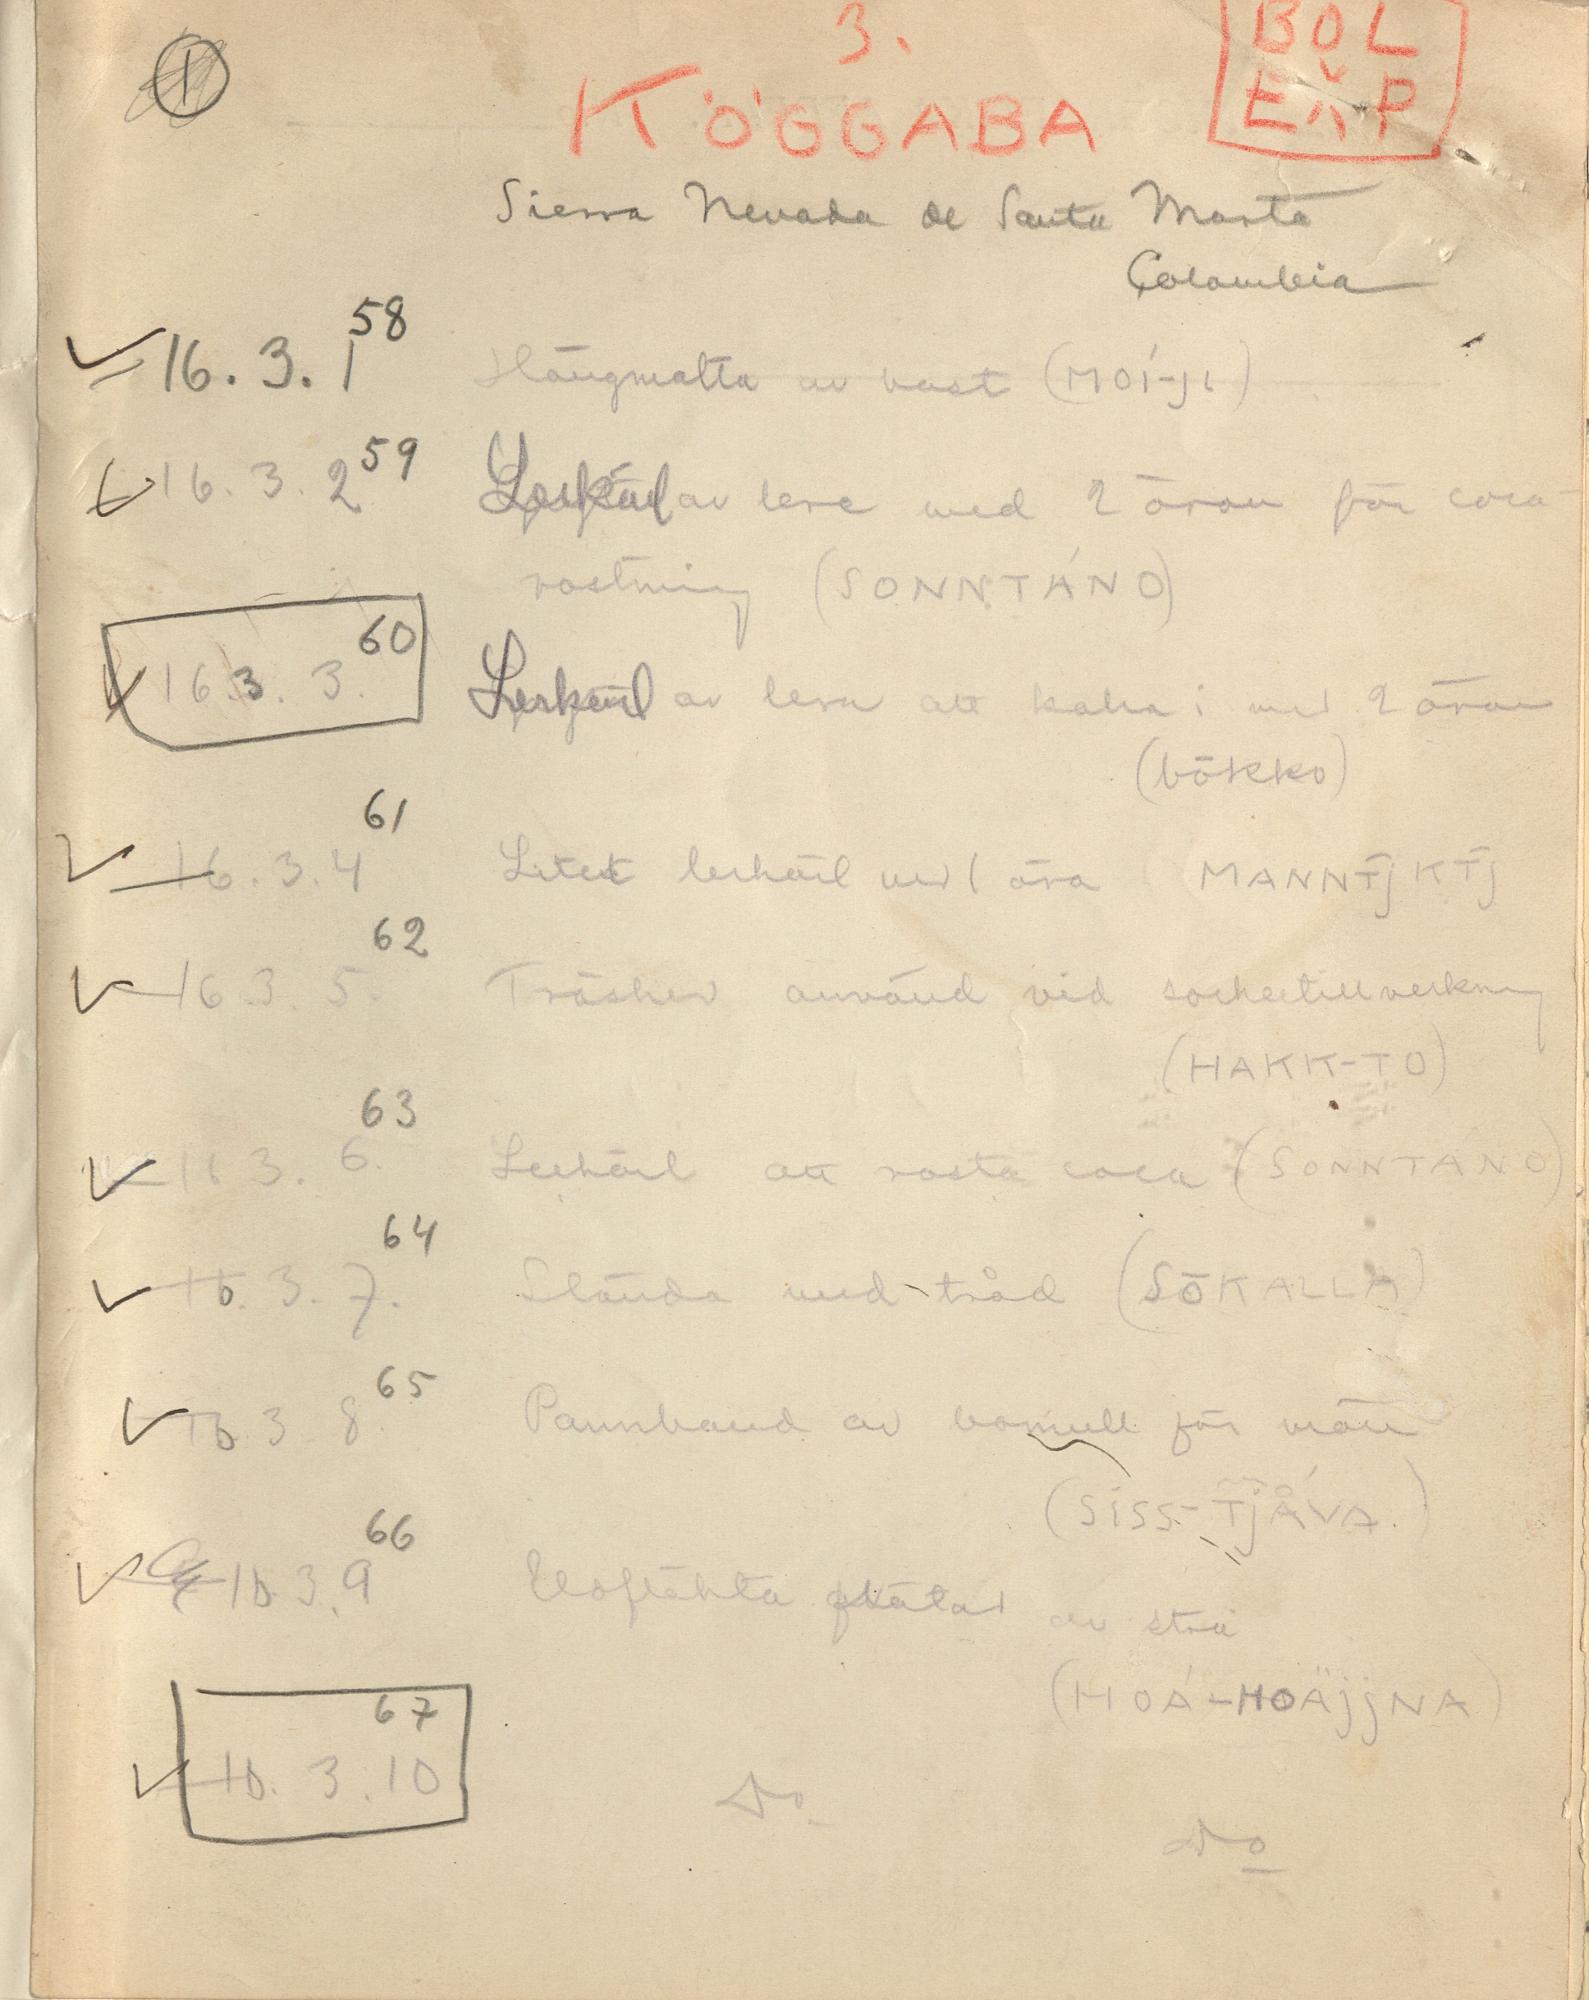 1
3.
BOL
EXP
KÖGGABA
Sierra Nevada de Santa Marta
Colombia
58
16. 3. 1 Hängmatta av bast (MOÍ-JI)
59
16. 3. 2 Lerkärl av lera med 2 öron för coca-
rostning (SONNTÁNO)
60
16. 3. 3. Lerkärl av lera att koka i med 2 öron
(bökko)
61
16. 3. 4 Litet lerkärl med 1 öra (MANNTJ KTJ
62
16. 3. 5. Träsked använd vid sockertillverkning
(HAKK-TO)
63
16 3. 6. Lerkärl att rosta coca (SONNTANO)
64
16. 3. 7. Slända med tråd (SÖKALLA)
65
16 3 8. Pannband av bomull för män
(SISS-TJÅVA.)
66
16. 3. 9 Eldfläkta flätad av strå
(HOÁ-HOÄJJNA)
67
16. 3. 10 Do
Do